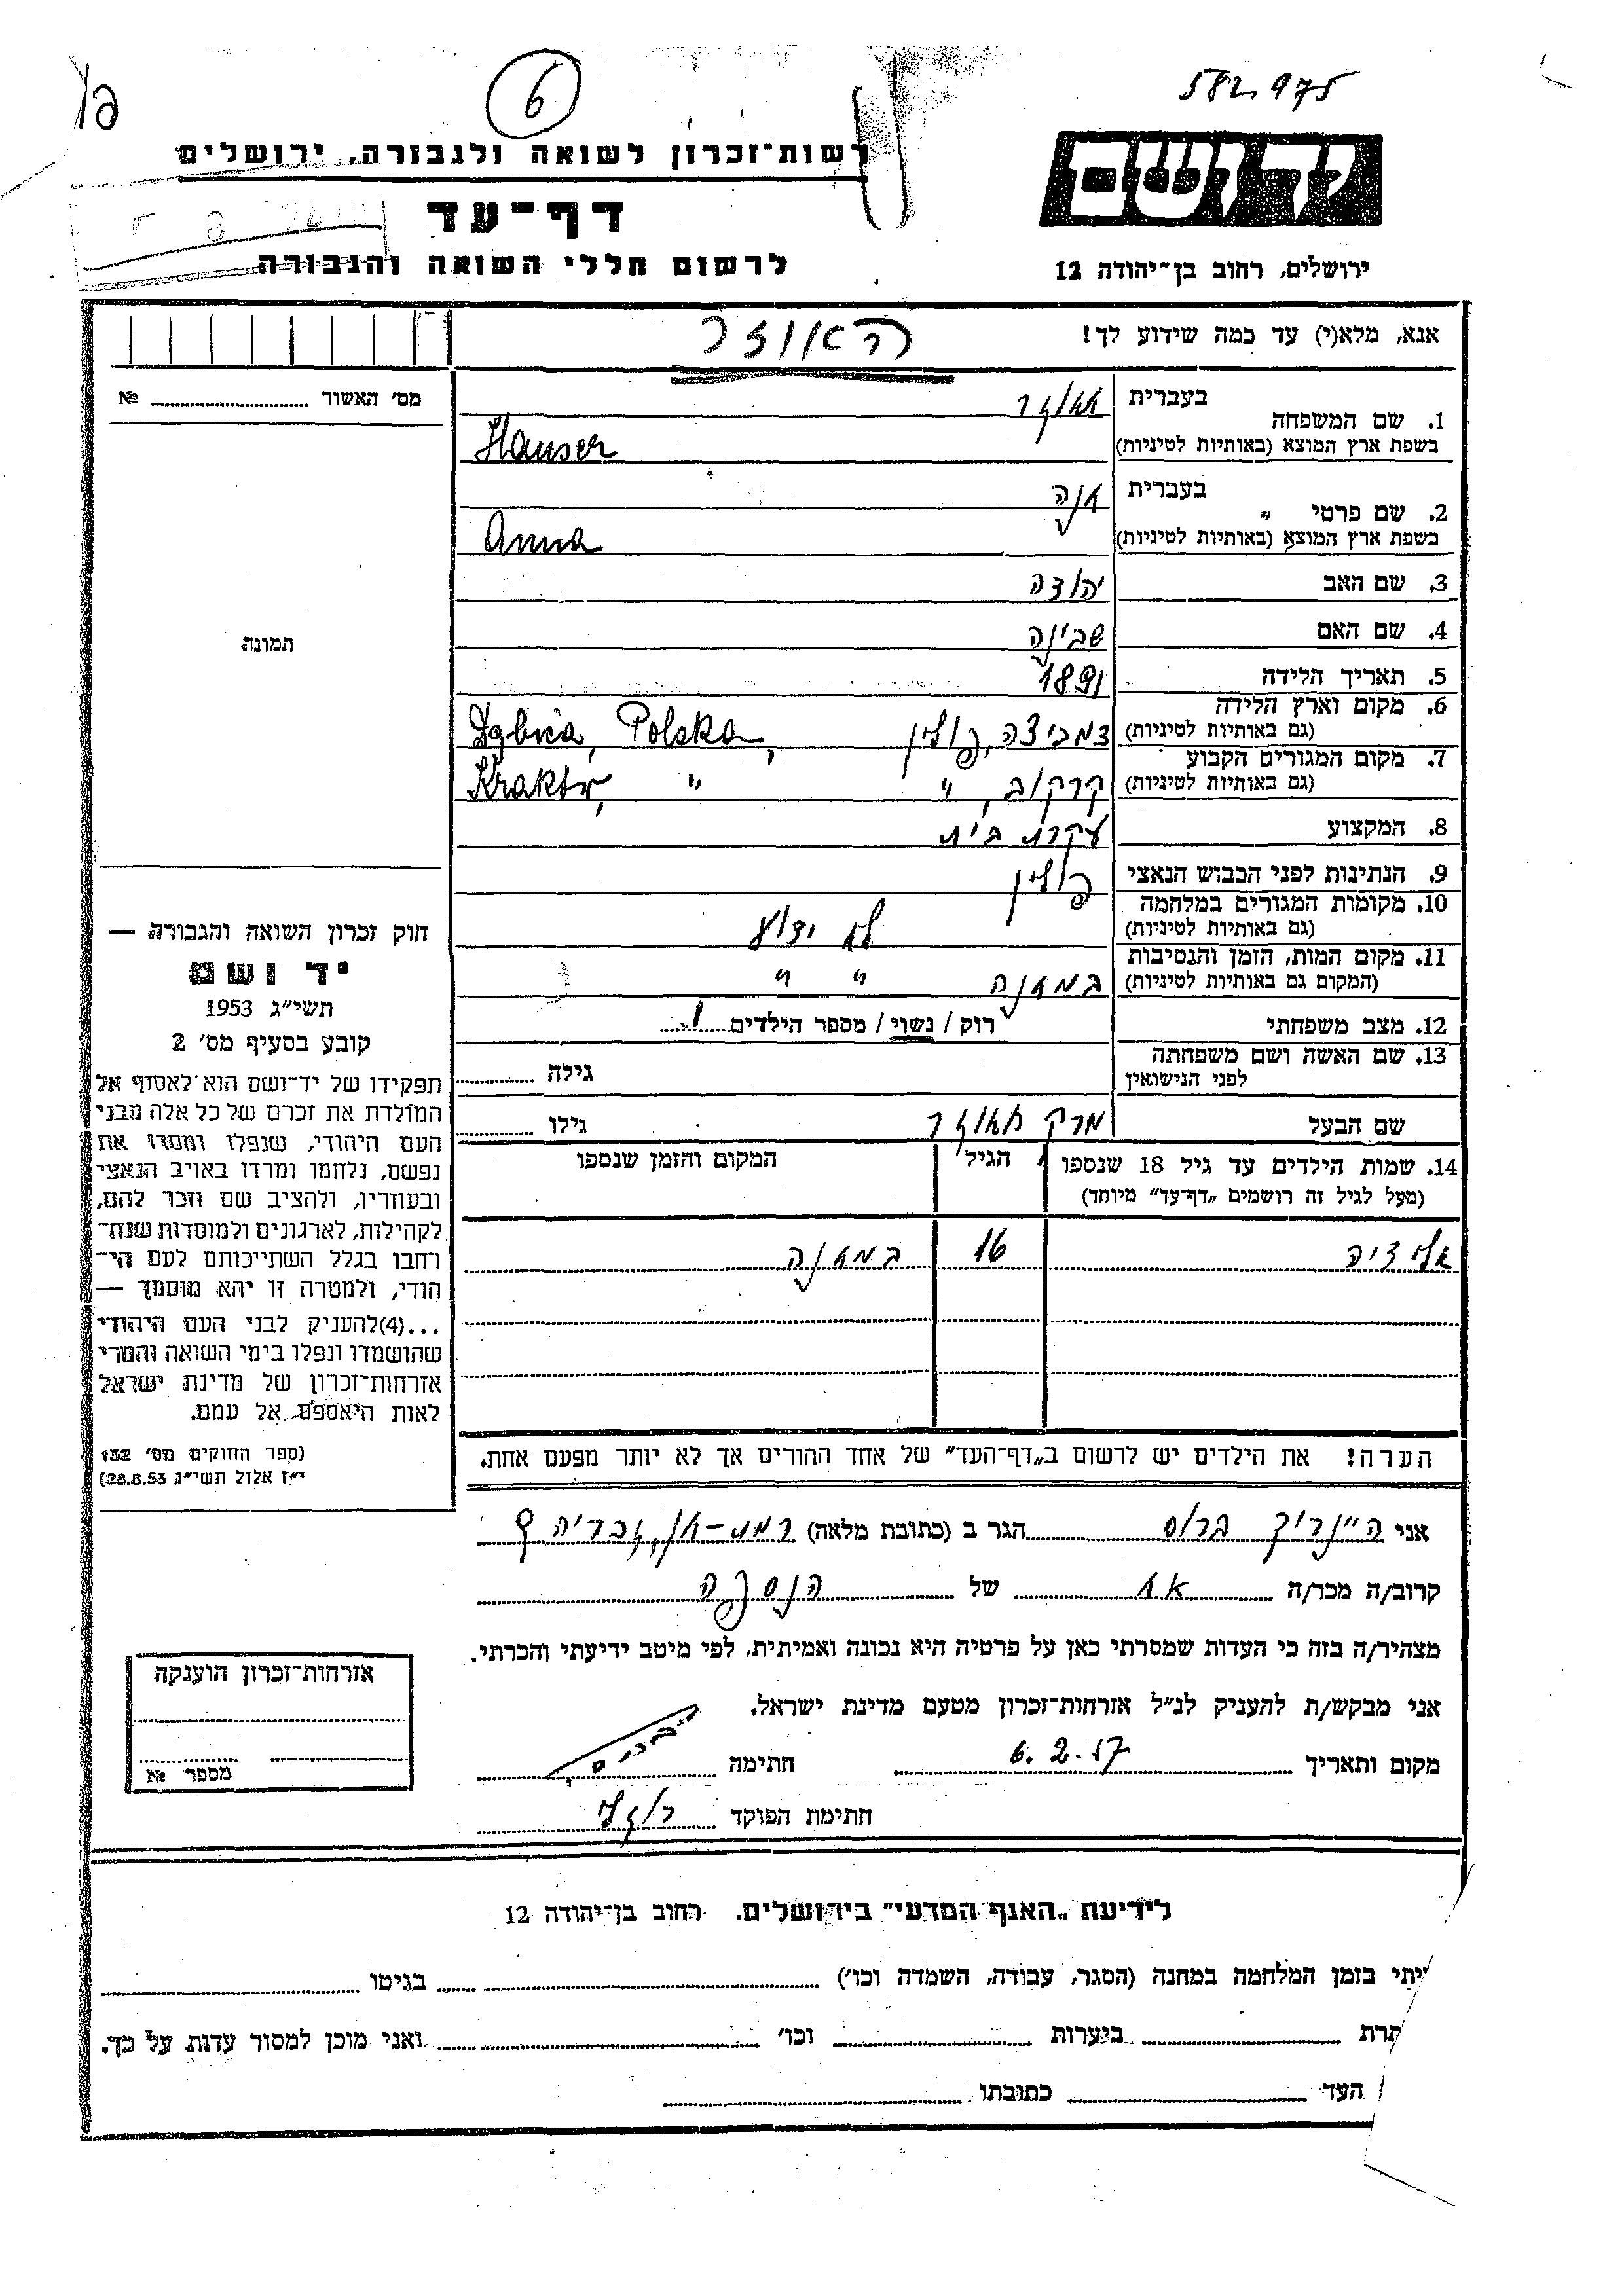 582975
6
יד ושם
רשות־זכרון לשואה ולגבורה, ירושלים
דף־עד
לרשום חללי השואה והגבורה
ירושלים, רחוב בן־יהודה 12
אנא, מלא(י) עד כמה שידוע לך!
האוזר
מס׳ האשור № 
1. שם המשפחה בעברית האוזר
בשפת ארץ המוצא (באותיות לטיניות) Hauser
2. שם פרטי " בעברית אנה
בשפת ארץ המוצא (באותיות לטיניות) Anna
3. שם האב יהודה
4. שם האם שבינה
5. תאריך הלידה 1891
6. מקום וארץ הלידה
(גם באותיות לטיניות) דמביצה, פולין Dębica, Polska,
7. מקום המגורים הקבוע
(גם באותיות לטיניות) קרקוב, " Kraków, "
8. המקצוע עקרת בית
9. הנתינות לפני הכבוש הנאצי פולין
10. מקומות המגורים במלחמה
(גם באותיות לטיניות) לא ידוע
11. מקום המות, הזמן והנסיבות
(המקום גם באותיות לטיניות) במחנה " "
12. מצב משפחתי רוק / נשוי / מספר הילדים 1
13. שם האשה ושם משפחתה
לפני הנישואין גילה
שם הבעל מרק האוזר גילו
14. שמות הילדים עד גיל 18 שנספו הגיל המקום והזמן שנספו
(מעל לגיל זה רושמים „דף־עד" מיוחד)
16 במחנה
הערה! את הילדים יש לרשום ב„דף־העד" של אחד ההורים אך לא יותר מפעם אחת.
תמונה
חוק זכרון השואה והגבורה —
יד ושם
תשי״ג 1953
קובע בסעיף מס׳ 2
תפקידו של יד־ושם הוא לאסוף אל
המולדת את זכרם של כל אלה מבני
העם היהודי, שנפלו ומסרו את
נפשם, נלחמו ומרדו באויב הנאצי
ובעוזריו, ולהציב שם וזכר להם,
לקהילות, לארגונים ולמוסדות שנח־
רחבו בגלל השתייכותם לעם הי־
הודי, ולמטרה זו יהא מוסמך —
...(4)להעניק לבני העם היהודי
שהושמדו ונפלו בימי השואה והמרי
אזרחות־זכרון של מדינת ישראל
לאות היאספם אל עמם.
(ספר החוקים מס׳ 132
י״ז אלול תשי״ג 28.8.53)
אני היינריך גרוס הגר ב (כתובת מלאה) רמת-גן,
קרוב/ה מכר/ה אח של הנספה
מצהיר/ה בזה כי העדות שמסרתי כאן על פרטיה היא נכונה ואמיתית, לפי מיטב ידיעתי והכרתי.
אני מבקש/ת להעניק לנ״ל אזרחות־זכרון מטעם מדינת ישראל.
מקום ותאריך 6.2.57 חתימה
חתימת הפוקד
אזרחות־זכרון הוענקה
מספר №
לידיעת „האגף המדעי" בירושלים. רחוב בן־יהודה 12
יתי בזמן המלחמה במחנה (הסגר, עבודה, השמדה וכו׳) בגיטו
תרת ביערות וכו׳ ואני מוכן למסור עדות על כך.
העד כתובתו